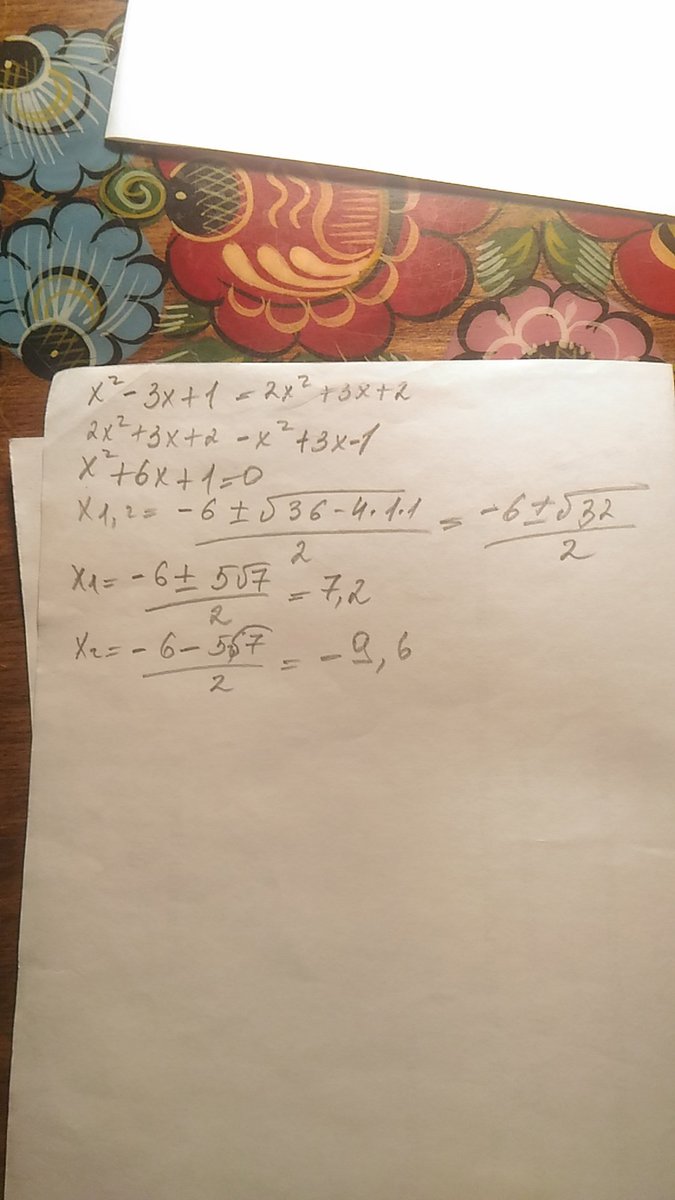 x² - 3x + 1 = 2x² + 3x + 2
2x² + 3x + 2 - x² + 3x - 1
x² + 6x + 1 = 0
x₁,₂ = -6 ± √36 - 4·1·1 / 2 = -6 ± √32 / 2
x₁ = -6 ± 5√7 / 2 = 7,2
x₂ = -6 - 5√7 / 2 = -9,6